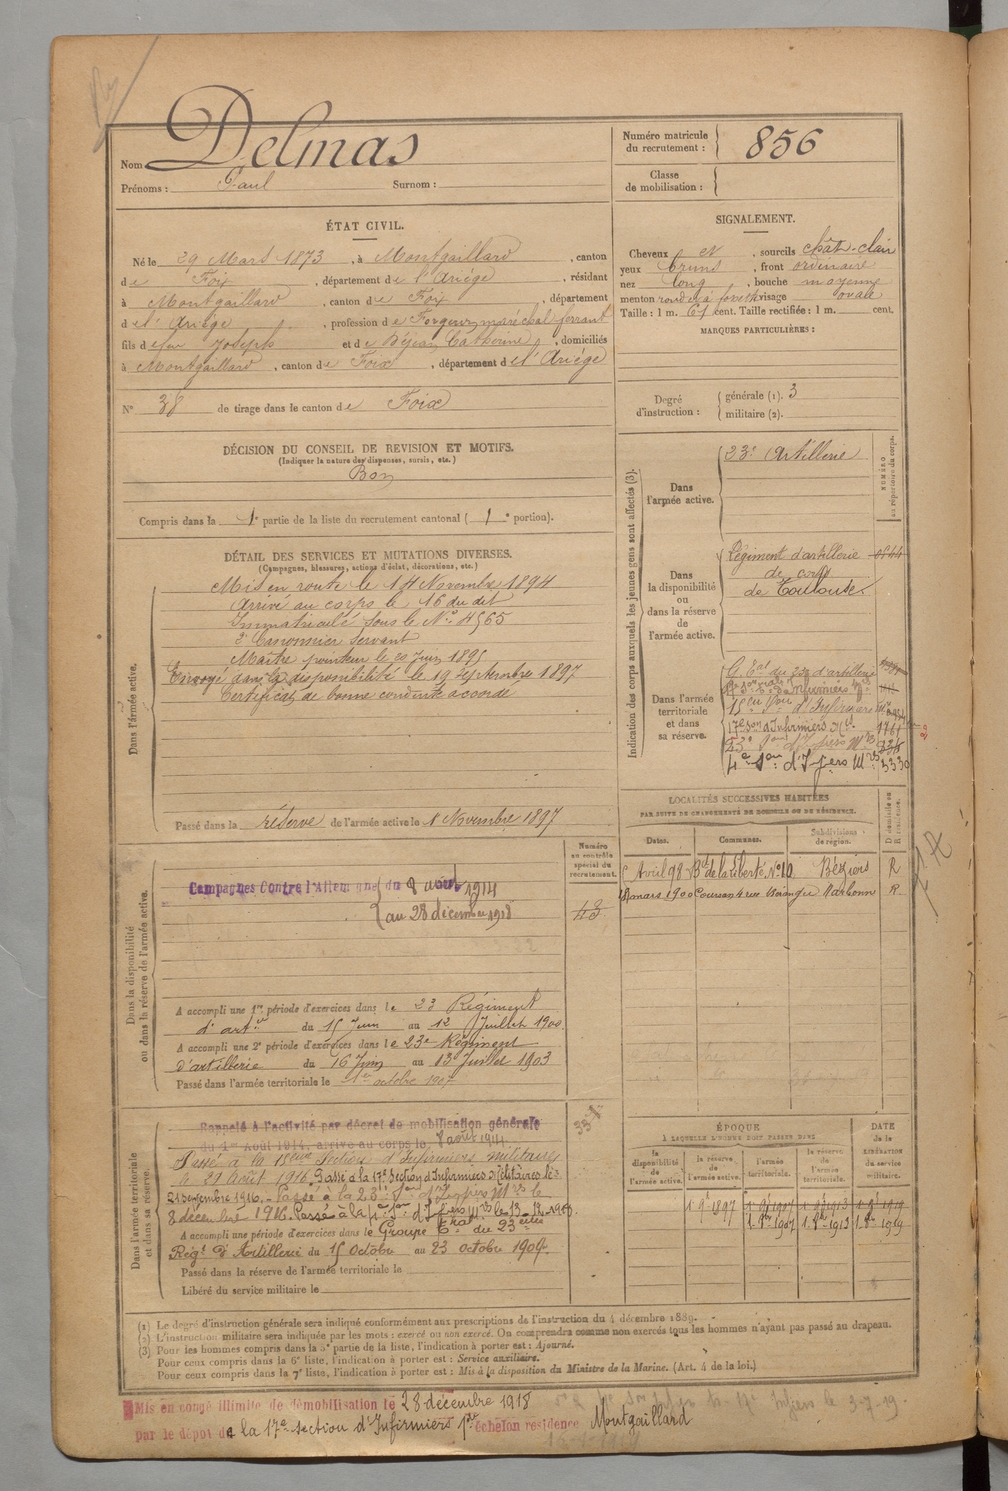 Nom Delmas
Prénoms : Paul Surnom :
Numéro matricule du recrutement : 856
Classe de mobilisation :
ÉTAT CIVIL.
Né le 29 Mars 1873, à Montgaillard, canton
de Foix, département de l'Ariège, résidant
à Montgaillard, canton de Foix, département
de l'Ariège, profession de Forgeron, maréchal ferrant
fils de feu Joseph et de Béjean Catherine, domiciliés
à Montgaillard, canton de Foix, département de l'Ariège
N° 38 de tirage dans le canton de Foix
SIGNALEMENT.
Cheveux et, sourcils chât-clair
yeux bruns, front ordinaire
nez long, bouche moyenne
menton rond et à fossette visage ovale
Taille : 1 m. 61 cent. Taille rectifiée : 1 m. cent.
MARQUES PARTICULIÈRES :
Degré d'instruction : générale (1). 3
militaire (2).
DÉCISION DU CONSEIL DE REVISION ET MOTIFS.
(Indiquer la nature des dispenses, sursis, etc.)
Bon
Compris dans la 1e partie de la liste du recrutement cantonal ( 1e portion).
DÉTAIL DES SERVICES ET MUTATIONS DIVERSES.
(Campagnes, blessures, actions d'éclat, décorations, etc.)
Dans l'armée active.
Mis en route le 14 Novembre 1894
Arrivé au corps le 16 du dit
Immatriculé sous le N° 4565
2e Canonnier Servant
Maître pointeur le 20 Juin 1895
Envoyé dans la disponibilité le 19 Septembre 1897
Certificat de bonne conduite accordé
Passé dans la réserve de l'armée active le 1 Novembre 1897
Indication des corps auxquels les jeunes gens sont affectés (3).
NUMÉRO au répertoire du corps.
Dans l'armée active.
23e Artillerie
Dans la disponibilité ou dans la réserve de l'armée active.
Régiment d'artillerie
de corps
de Toulouse
Dans l'armée territoriale et dans sa réserve.
G. Eal du 23e d'artillerie
17e Son d'Infirmiers Mres 1761
23e Son d'Infers Mres
4e Son d'Infers Mres 3330
LOCALITÉS SUCCESSIVES HABITÉES
PAR SUITE DE CHANGEMENTS DE DOMICILE OU DE RÉSIDENCE.
Dates. Communes. Subdivisions de région. D domicile ou R résidence.
Avril 98 Bd de la liberté No 10 Béziers R
mars 1900 Coursan 4 rue Béranger Narbonne R
Dans la disponibilité ou dans la réserve de l'armée active.
Numéro au contrôle spécial du recrutement.
Campagnes Contre l'Allemagne du 8 août 1914
au 28 décembre 1918
43
A accompli une 1re période d'exercices dans le 23 Régiment
d'artie du 15 Juin au 12 Juillet 1900
A accompli une 2e période d'exercices dans le 23e Régiment
d'artillerie du 16 Juin au 13 Juillet 1903
Passé dans l'armée territoriale le 1er octobre 1907
Dans l'armée territoriale et dans sa réserve.
Rappelé à l'activité par décret de mobilisation générale
du 1er Août 1914, arrivé au corps le 8 août 1914.
Passé à la 18ème Section d'Infirmiers militaires
le 29 Août 1916 Passé à la 17e Section d'Infirmiers Militaires le
21 Septembre 1916. - Passé à la 23e Son d'Infers Mres le
8 décembre 1916. Passé à la 4e Son d'Infers Mres le 13-12-1916
A accompli une période d'exercices dans le Groupe Tal du 23ème
Régt d'Artillerie du 15 Octobre au 23 octobre 1909.
Passé dans la réserve de l'armée territoriale le
Libéré du service militaire le
ÉPOQUE
À LAQUELLE L'HOMME DOIT PASSER DANS
la disponibilité de l'armée active. la réserve de l'armée active. l'armée territoriale. la réserve de l'armée territoriale.
DATE de la LIBÉRATION du service militaire.
(1) Le degré d'instruction générale sera indiqué conformément aux prescriptions de l'instruction du 4 décembre 1889.
(2) L'instruction militaire sera indiquée par les mots : exercé ou non exercé. On comprendra comme non exercés tous les hommes n'ayant pas passé au drapeau.
(3) Pour les hommes compris dans la 5e partie de la liste, l'indication à porter est : Ajourné.
Pour ceux compris dans la 6e liste, l'indication à porter est : Service auxiliaire.
Pour ceux compris dans la 7e liste, l'indication à porter est : Mis à la disposition du Ministre de la Marine. (Art. 4 de la loi.)
Mis en congé illimité de démobilisation le 28 décembre 1918
par le dépôt de la 17e section d'Infirmiers 1er échelon résidence Montgaillard